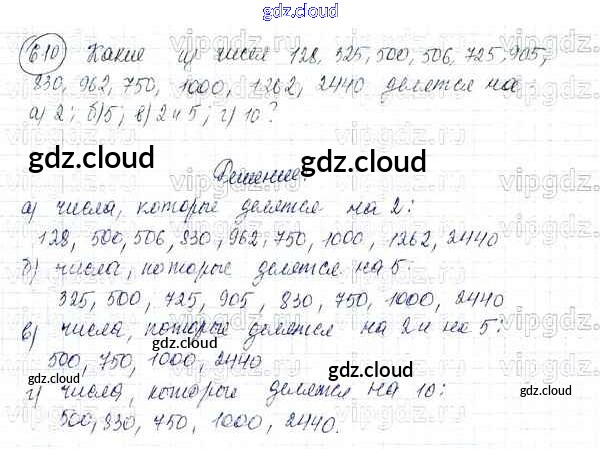 gdz.cloud
610 Какие из чисел 128, 325, 500, 506, 725, 905,
830, 962, 750, 1000, 1262, 2440 делятся на
а) 2; б) 5; в) 2 и 5; г) 10?
gdz.cloud gdz.cloud
Решение:
а) числа, которые делятся на 2:
128, 500, 506, 830, 962, 750, 1000, 1262, 2440
б) числа, которые делятся на 5:
325, 500, 725, 905, 830, 750, 1000, 2440
в) числа, которые делятся на 2 и на 5:
500, 750, 1000, 2440
gdz.cloud gdz.cloud
г) числа, которые делятся на 10:
500, 830, 750, 1000, 2440.
gdz.cloud